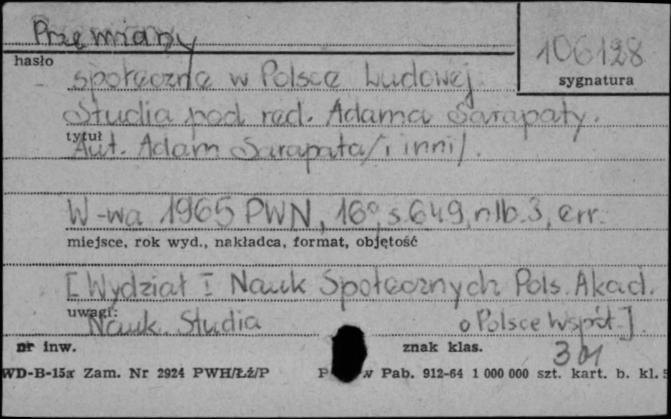 Przemiany
hasło
106128
sygnatura
społeczne w Polsce Ludowej
Studia pod red. Adama Sarapaty.
tytuł
Aut. Adam Sarapata /i inni/.
W-wa 1965 PWN, 16°, s. 649, nlb. 3, err.
miejsce, rok wyd., nakładca, format, objętość
[Wydział I Nauk Społecznych Pols. Akad.
uwagi:
Nauk. Studia o Polsce Współ.]
nr inw.
znak klas.
301
WD-B-15a Zam. Nr 2924 PWH/Łź/P
w Pab. 912-64 1 000 000 szt. kart. b. kl. 5